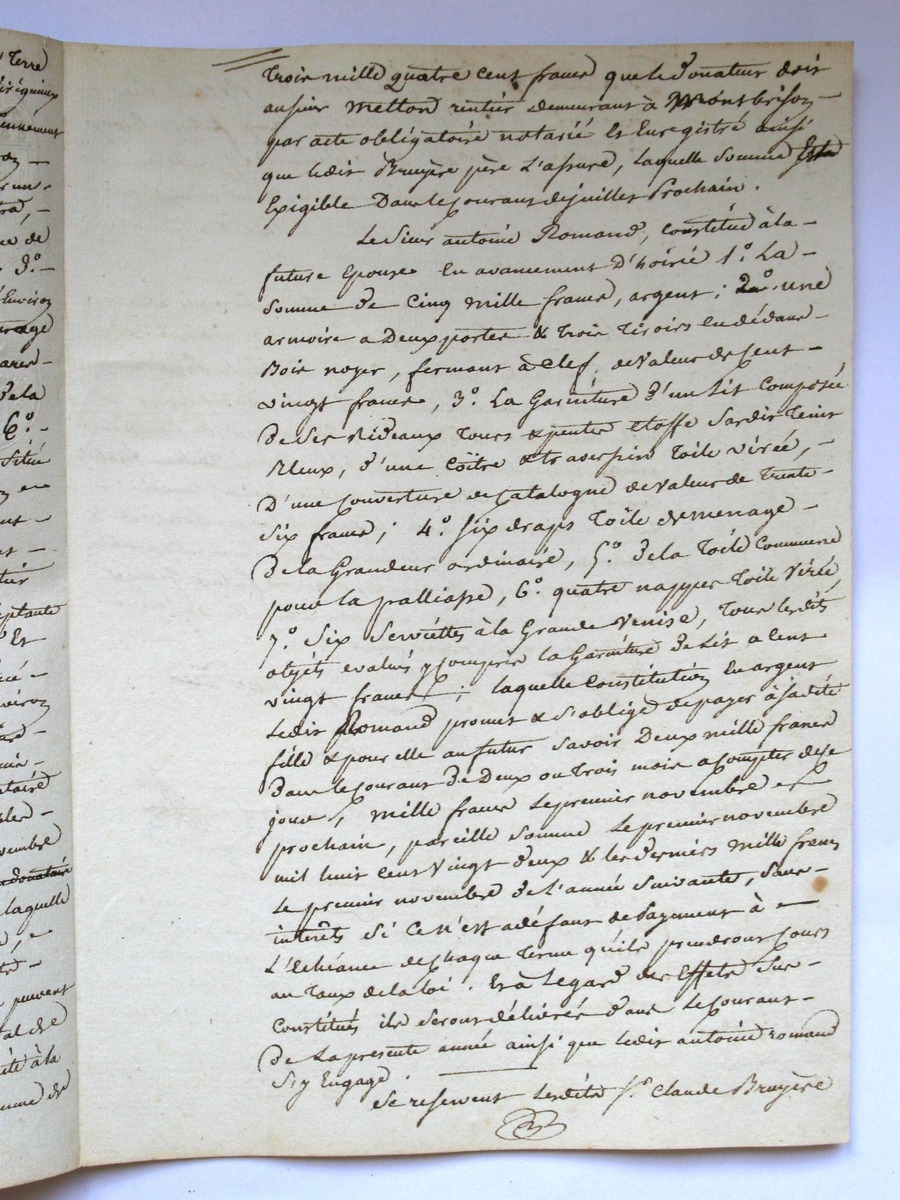 Trois mille quatre cent francs que le Donateur doit
au sieur Metton rentier demeurant à Montbrison
par acte obligatoire notarié et Enregistré ainsi
que ledit Bruyère père l'assure, laquelle somme
Exigible Dans le courant de juillet Prochain.
Le Sieur antoine Romand, constitue à la
future Epouse En avancement D'hoirie 1.º La
somme de Cinq mille francs, argent; 2.º une
armoire a Deux portes & Trois Tiroirs En dédans
Bois noyer, fermant à clef, de valeur de Cent
vingt francs, 3.º La Garniture d'un Lit composée
De Ses Rideaux Tours & pentes étoffe Sardis Teint
Bleux, d'une Coître & traversin Toile virée,
D'une couverture de Catalogne de valeur de Trente
Six francs; 4.º Six draps Toile de menage
De la Grandeur ordinaire, 5.º de la Toile Commune
pour la palliasse, 6.º quatre nappes Toile Virée,
7.º Six Serviettes à la Grande Venise, Tous lesdits
objets evalués y compris la Garniture de Lit a Cent
vingt francs; laquelle Constitution En argent
Ledit Romand promet & s'oblige de payer à sadite
fille & pour elle au futur Savoir Deux mille francs
Dans le courant de Deux ou Trois mois a compter de ce
jour, mille francs le premier novembre
prochain, pareille somme Le premier novembre
mil huit cent vingt deux & les derniers mille francs
Le premier novembre de l'année suivante, Sans
interêts Si Ce n'est a défaut de Payement à
L'echéance de chaque Terme qu'ils prendront cours
au Taux de la loi. Et à l'egard des Effets Sus
Constitués ils Seront délivrés dans Le courant
De la presente année ainsi que ledit antoine romand
S'y Engage.
Se reservent Lesdits S.r Claude Bruyère